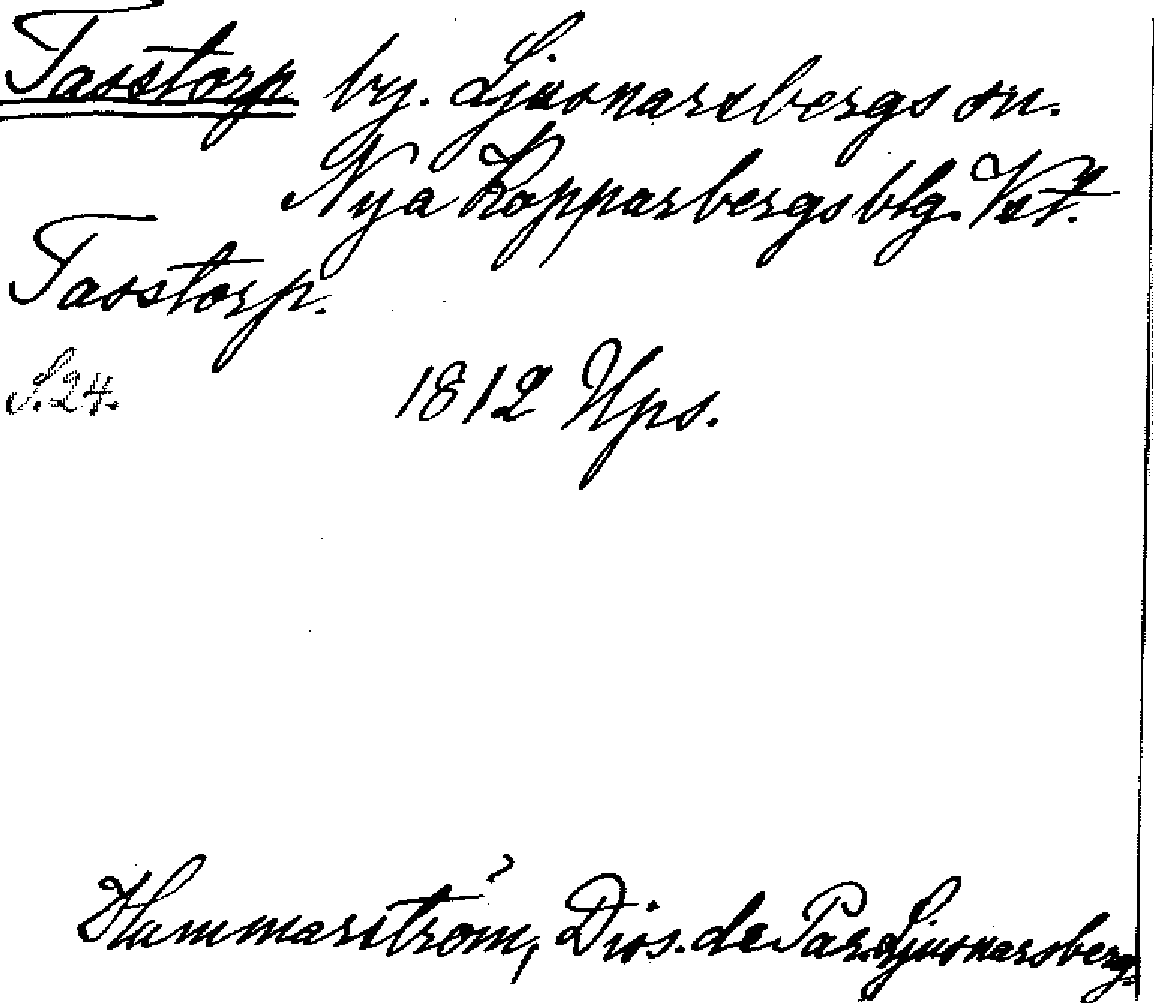 Tasstorp by. Ljusnarsbergs sn.
Nya Kopparbergs blg. Vstm.
Tasstorp.
S.24. 1812 Ups.
Hammarström, Diss. de Par. Ljusnarsberg.